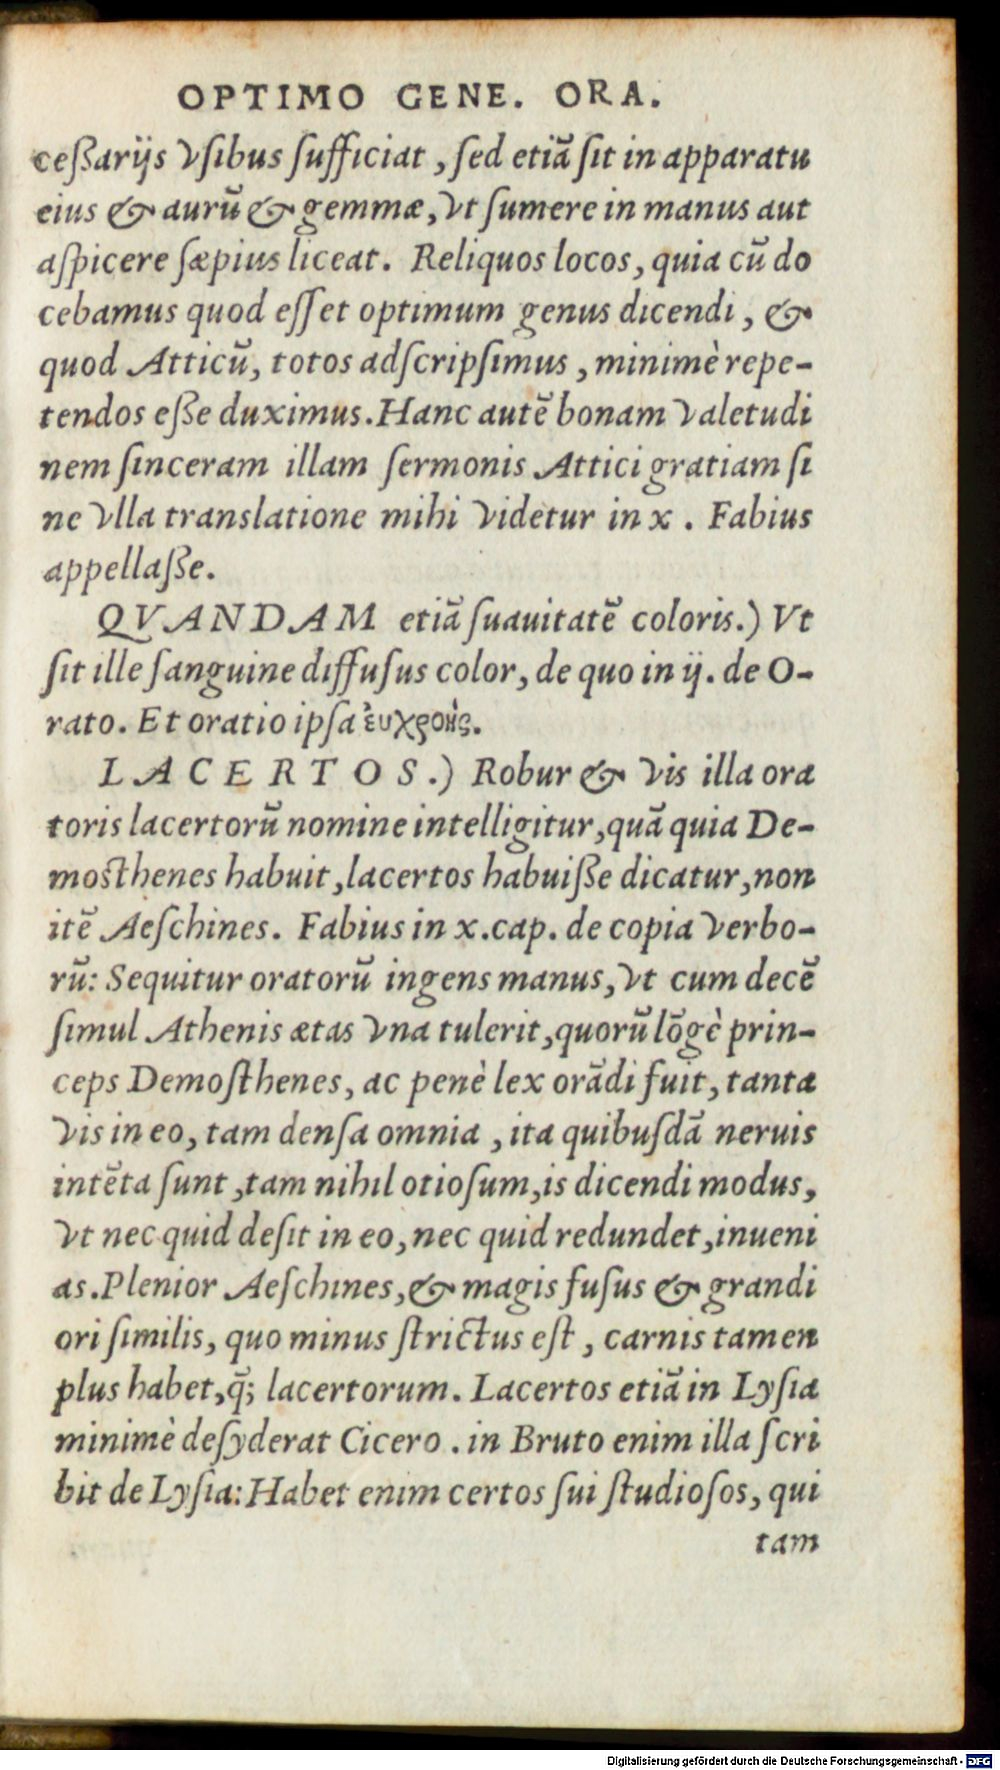 OPTIMO GENE. ORA.
ceßarijs vſibus ſufficiat, ſed etiā ſit in apparatu
eius & aurū & gemmæ, vt ſumere in manus aut
aſpicere ſæpius liceat. Reliquos locos, quia cū do
cebamus quod eſſet optimum genus dicendi, &
quod Atticū, totos adſcripſimus, minimè repe-
tendos eße duximus. Hanc autē bonam valetudi
nem ſinceram illam ſermonis Attici gratiam ſi
ne vlla translatione mihi videtur in x. Fabius
appellaße.
QVANDAM etiā ſuauitatē coloris.) Vt
ſit ille ſanguine diffuſus color, de quo in ij. de O-
rato. Et oratio ipſa ἐυχροὴς.
LACERTOS.) Robur & vis illa ora
toris lacertorū nomine intelligitur, quā quia De-
moſthenes habuit, lacertos habuiße dicatur, non
itē Aeſchines. Fabius in x. cap. de copia verbo-
rū: Sequitur oratorū ingens manus, vt cum decē
ſimul Athenis ætas vna tulerit, quorū lōgè prin-
ceps Demoſthenes, ac penè lex orādi fuit, tanta
vis in eo, tam denſa omnia, ita quibuſdā neruis
intēta ſunt, tam nihil otioſum, is dicendi modus,
vt nec quid deſit in eo, nec quid redundet, inueni
as. Plenior Aeſchines, & magis fuſus & grandi
ori ſimilis, quo minus ſtrictus eſt, carnis tamen
plus habet, q̄; lacertorum. Lacertos etiā in Lyſia
minimè deſyderat Cicero. in Bruto enim illa ſcri
bit de Lyſia: Habet enim certos ſui ſtudioſos, qui
tam
Digitalisierung gefördert durch die Deutsche Forschungsgemeinschaft - DFG